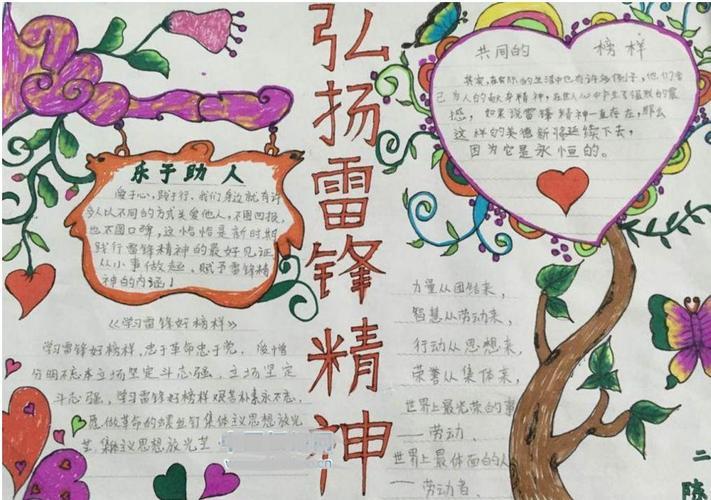 弘扬雷锋精神
乐于助人
爱于心,践于行,我们身边就有许
多人以不同的方式关爱他人,不图回报,
也不图口碑,这恰恰是新时期
践行雷锋精神的最好见证
从小事做起,赋予雷锋精
神的内涵!
《学习雷锋好榜样》
学习雷锋好榜样,忠于革命忠于党,爱憎
分明不忘本立场坚定斗志强,立场坚定
斗志强,学习雷锋好榜样艰苦朴素永不忘,
愿做革命的螺丝钉集体主义思想放光
芒,集体主义思想放光芒
共同的 榜样
其实,在我们的生活中也有许多例子,他们舍
己为人的献身精神,在世人心中产生了强烈的震
撼,如果说雷锋精神一直存在,那么
这样的美德新将延续下去,
因为它是永恒的。
力量从团结来,
智慧从劳动来,
行动从思想来,
荣誉从集体来,
世界上最光荣的事
——劳动,
世界上最体面的人
——劳动者
二